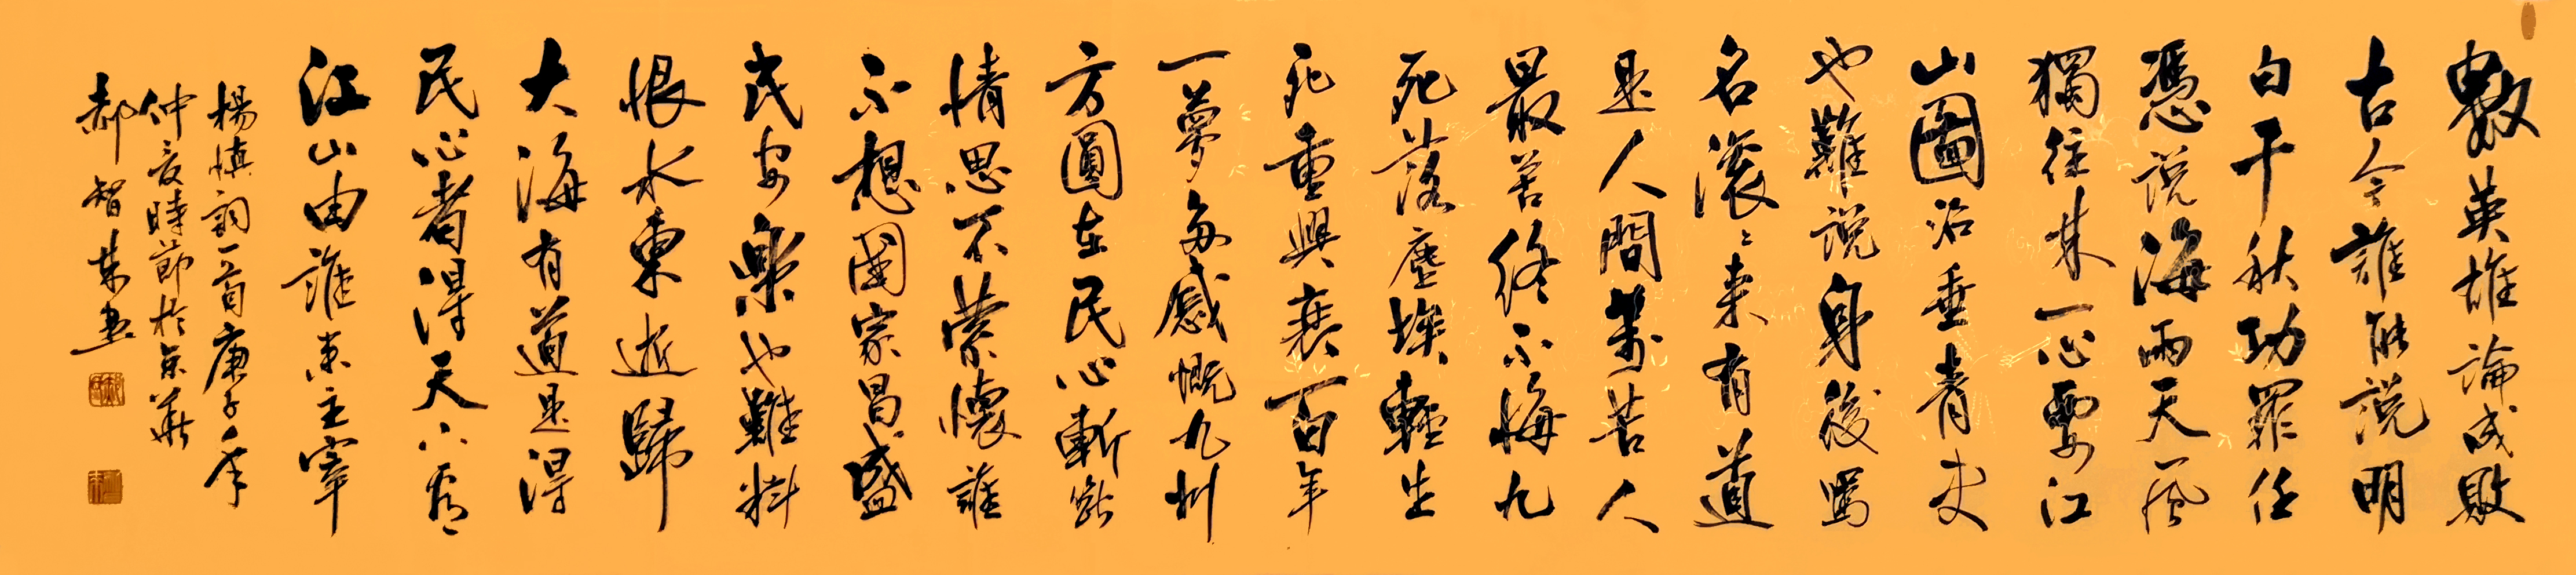 數英雄論成敗
古今誰能說明
白千秋功罪任
憑說海雨天風
獨往來一心要江
山圖治垂青史
也難說身後罵
名滾滾來有道
是人間萬苦人
最苦終不悔九
死落塵埃輕生
死重興衰百年
一夢多感慨九州
方圓在民心斬斷
情思不縈懷誰
不想國家昌盛
民安樂也難料
恨水東逝歸
大海有道是得
民心者得天下看
江山由誰來主宰
楊慎詞一首庚子年
仲夏時節於京華
郝智 書